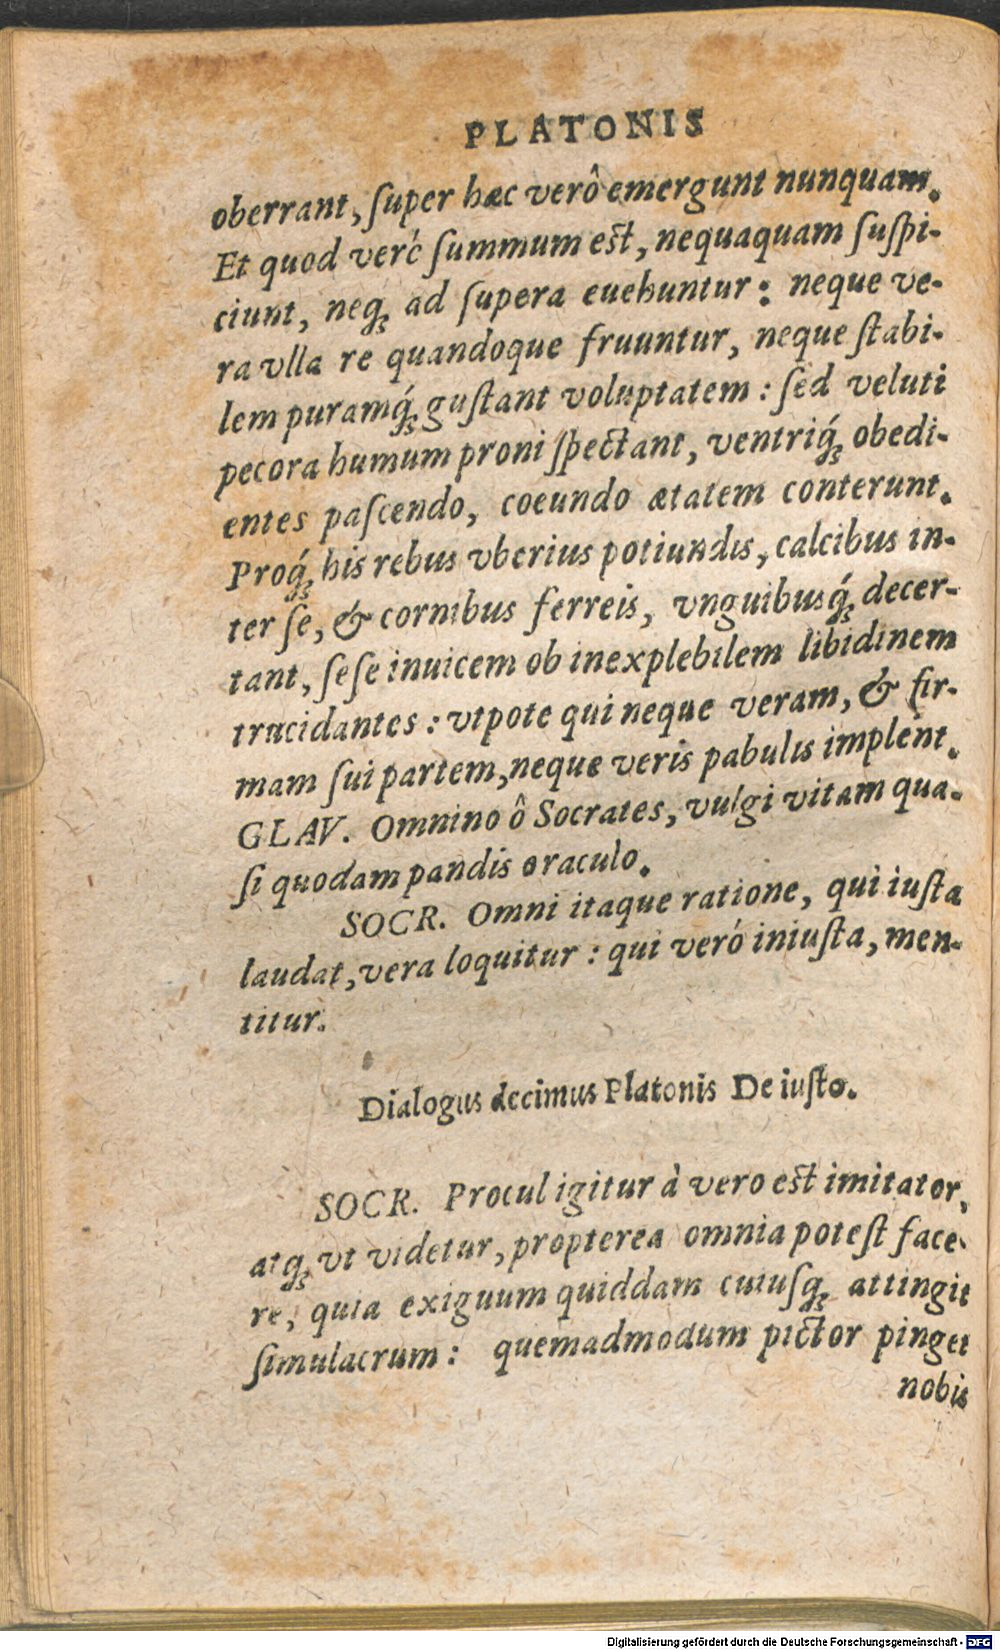 PLATONIS
oberrant, ſuper hæc verô emergunt nunquam.
Et quod veró ſummum eſt, nequaquam ſuſpi-
ciunt, neq; ad ſupera euehuntur: neque ve-
ra vlla re quandoque fruuntur, neque ſtabi-
lem puramq́; guſtant voluptatem: ſed veluti
pecora humum proni ſpectant, ventriq́; obedi-
entes paſcendo, coeundo ætatem conterunt.
Proq́; his rebus vberius potiundis, calcibus in-
ter ſe, & cornibus ferreis, vnguibusq́; decer-
tant, ſeſe inuicem ob inexplebilem libidinem
trucidantes: vtpote qui neque veram, & fir-
mam ſui partem, neque veris pabulis implent.
GLAV. Omnino ô Socrates, vulgi vitam qua-
ſi quodam pandis oraculo.
SOCR. Omni itaque ratione, qui iuſta
laudat, vera loquitur: qui veró iniuſta, men-
titur.
Dialogus decimus Platonis De iuſto.
SOCR. Procul igitur à vero eſt imitator,
atq; vt videtur, propterea omnia poteſt face-
re, quia exiguum quiddam cuiuſq; attingit
ſimulacrum: quemadmodum pictor pinget
nobis
Digitalisierung gefördert durch die Deutsche Forschungsgemeinschaft - DFG